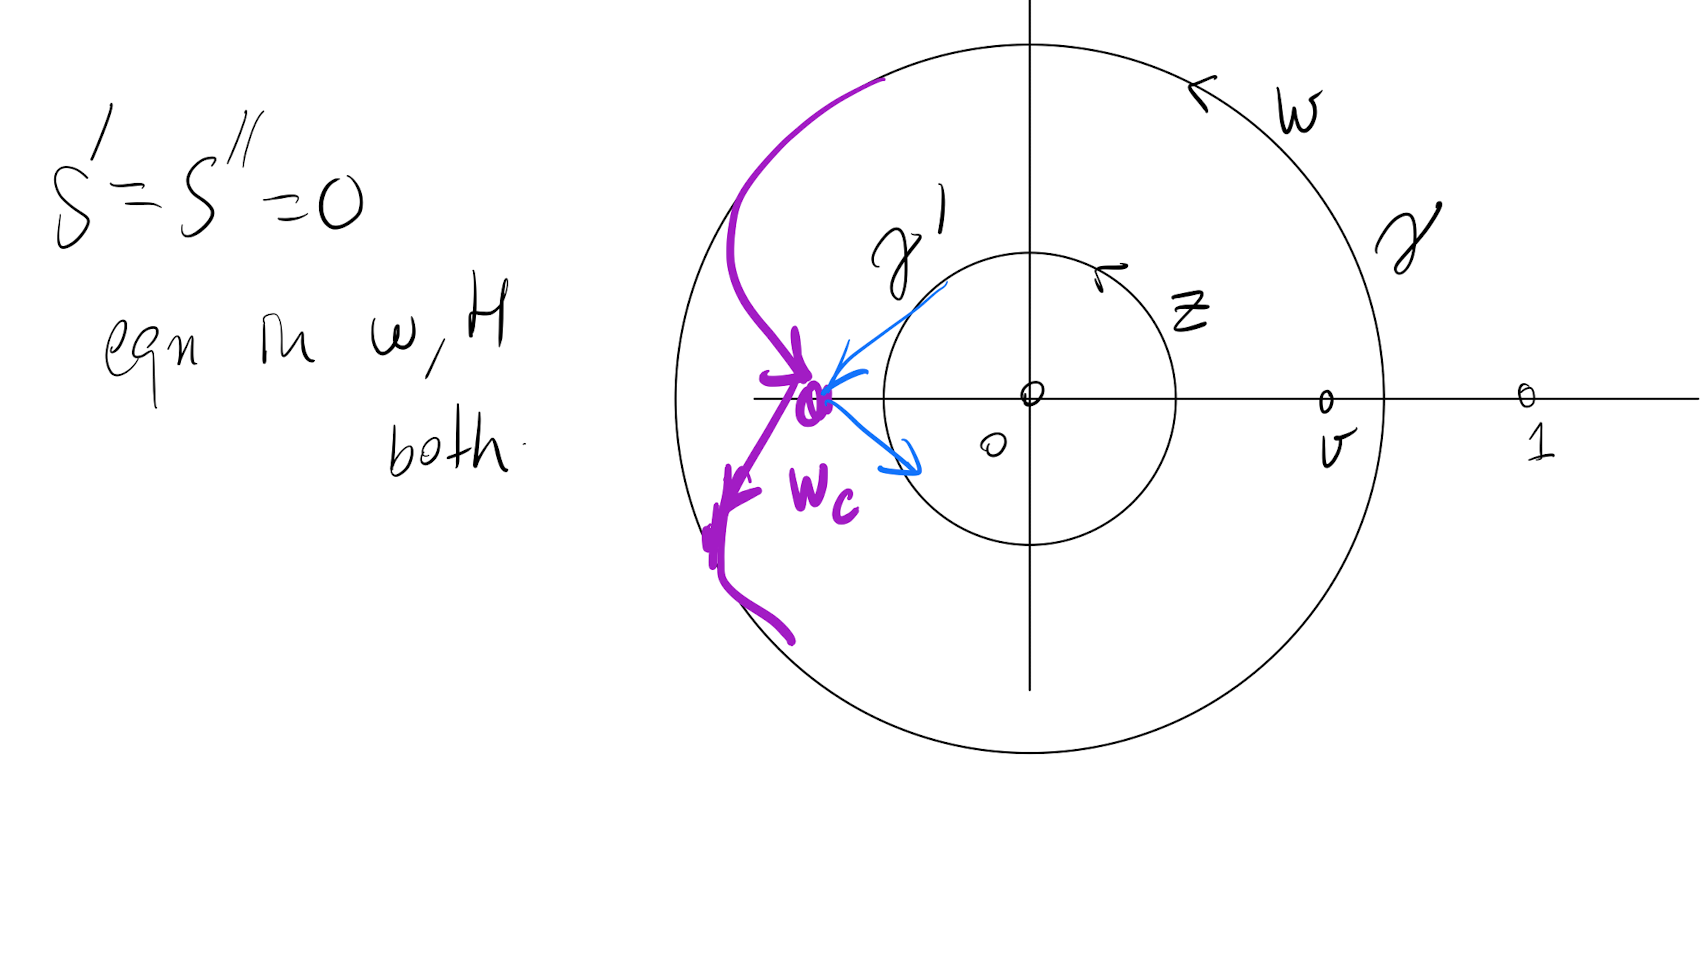 S' = S'' = 0
eqn in w, H
both.
w
γ
γ'
z
w_c
0
v
1